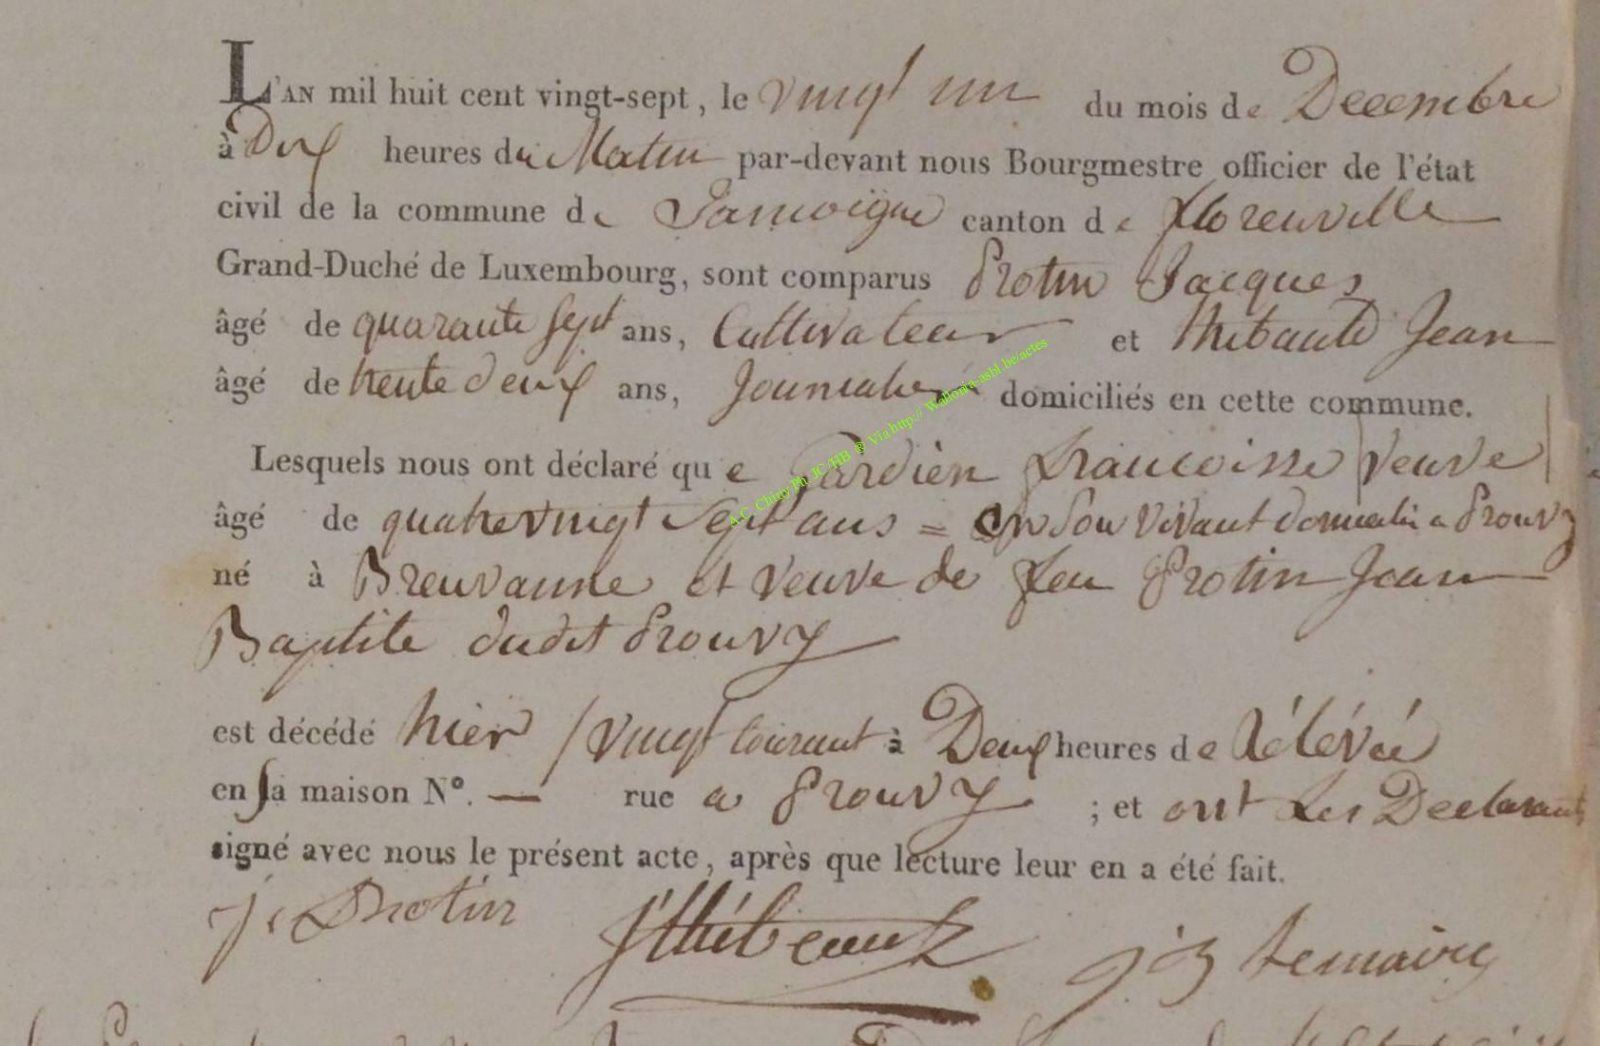 L'AN mil huit cent vingt-sept, le vingt un du mois de Decembre
à Dix heures du Matin par-devant nous Bourgmestre officier de l'état
civil de la commune de Jamoigne canton de florenville
Grand-Duché de Luxembourg, sont comparus Protin Jacques
âgé de quarante sept ans, Cultivateur et thibault Jean
âgé de trente deux ans, Journalier domiciliés en cette commune.
Lesquels nous ont déclaré que Gardien francoisse veuve
âgé de quatrevingt sept ans = en son vivant domicilié a Prouvy
né à Breuvanne et veuve de feu Protin Jean
Baptite dudit Prouvy
est décédé hier vingt courant à Deux heures de Rélévée
en sa maison N°. — rue a Prouvy ; et ont Les Declarants
signé avec nous le présent acte, après que lecture leur en a été fait.
j Protin J Thibeault Lemaire
A.C. Chiny Ph JC/HB ® Via http:// Wallonia-asbl.be/actes